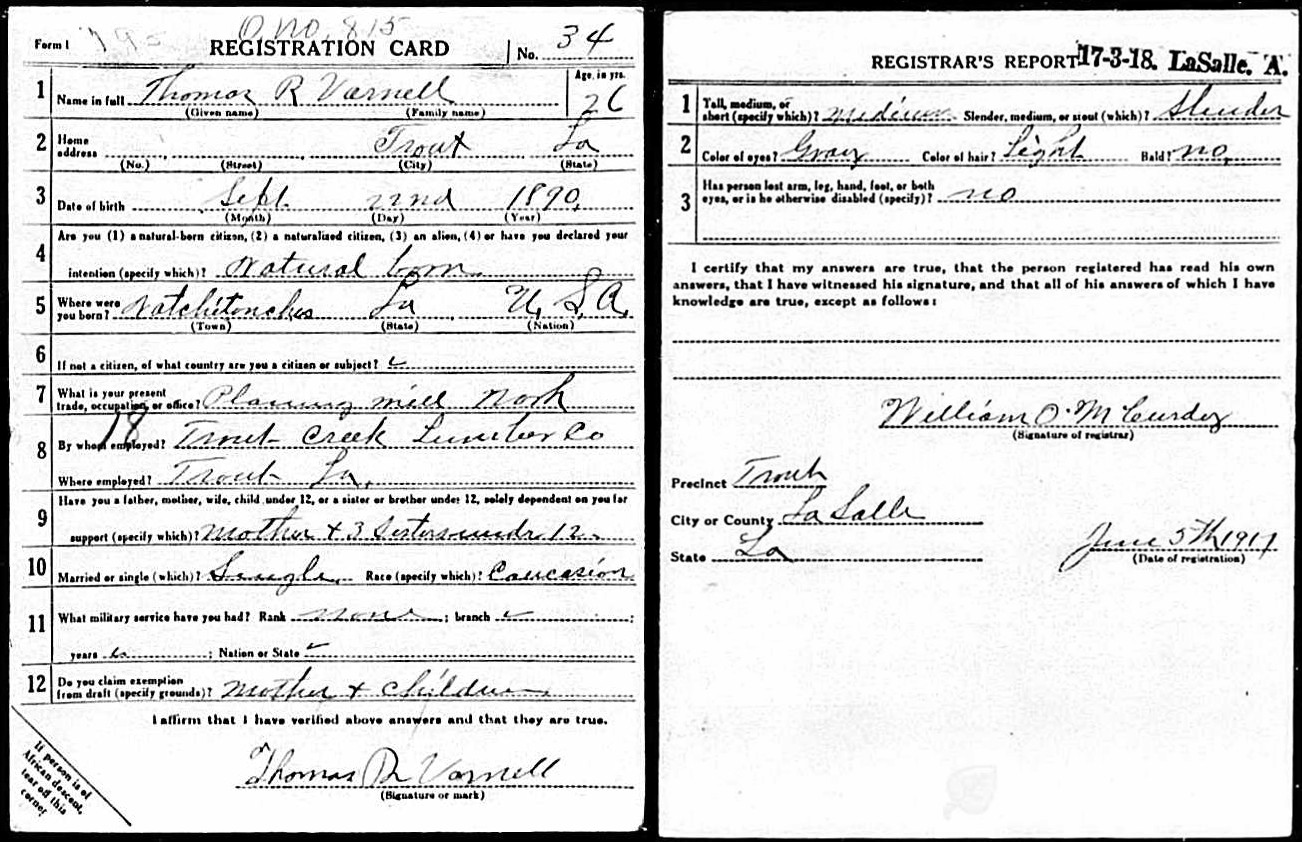 Form 1 O. No. 815 REGISTRATION CARD No. 34
1 Name in full Thomas R Varnell Age, in yrs. 26
(Given name) (Family name)
2 Home address Trout La
(No.) (Street) (City) (State)
3 Date of birth Sept. 22nd 1890
(Month) (Day) (Year)
4 Are you (1) a natural-born citizen, (2) a naturalized citizen, (3) an alien, (4) or have you declared your
intention (specify which)? Natural born
5 Where were you born? Natchitoches La U.S.A.
(Town) (State) (Nation)
6 If not a citizen, of what country are you a citizen or subject?
7 What is your present trade, occupation, or office? Planing mill Work
18
8 By whom employed? Trout Creek Lumber Co
Where employed? Trout La.
9 Have you a father, mother, wife, child under 12, or a sister or brother under 12, solely dependent on you for
support (specify which)? Mother + 3 Sisters undr 12
10 Married or single (which)? Single Race (specify which)? Caucasion
11 What military service have you had? Rank none ; branch ;
years ; Nation or State
12 Do you claim exemption from draft (specify grounds)? Mother + Children
I affirm that I have verified above answers and that they are true.
Thomas R Varnell
(Signature or mark)
If person is of
African descent,
tear off this
corner
REGISTRAR'S REPORT 17-3-18. LaSalle. A.
1 Tall, medium, or short (specify which)? medium Slender, medium, or stout (which)? Slender
2 Color of eyes? Gray Color of hair? Light Bald? no
3 Has person lost arm, leg, hand, foot, or both eyes, or is he otherwise disabled (specify)? no
I certify that my answers are true, that the person registered has read his own
answers, that I have witnessed his signature, and that all of his answers of which I have
knowledge are true, except as follows:
William O. McCurdy
(Signature of registrar)
Precinct Trout
City or County La Salle
State La June 5th 1917
(Date of registration)